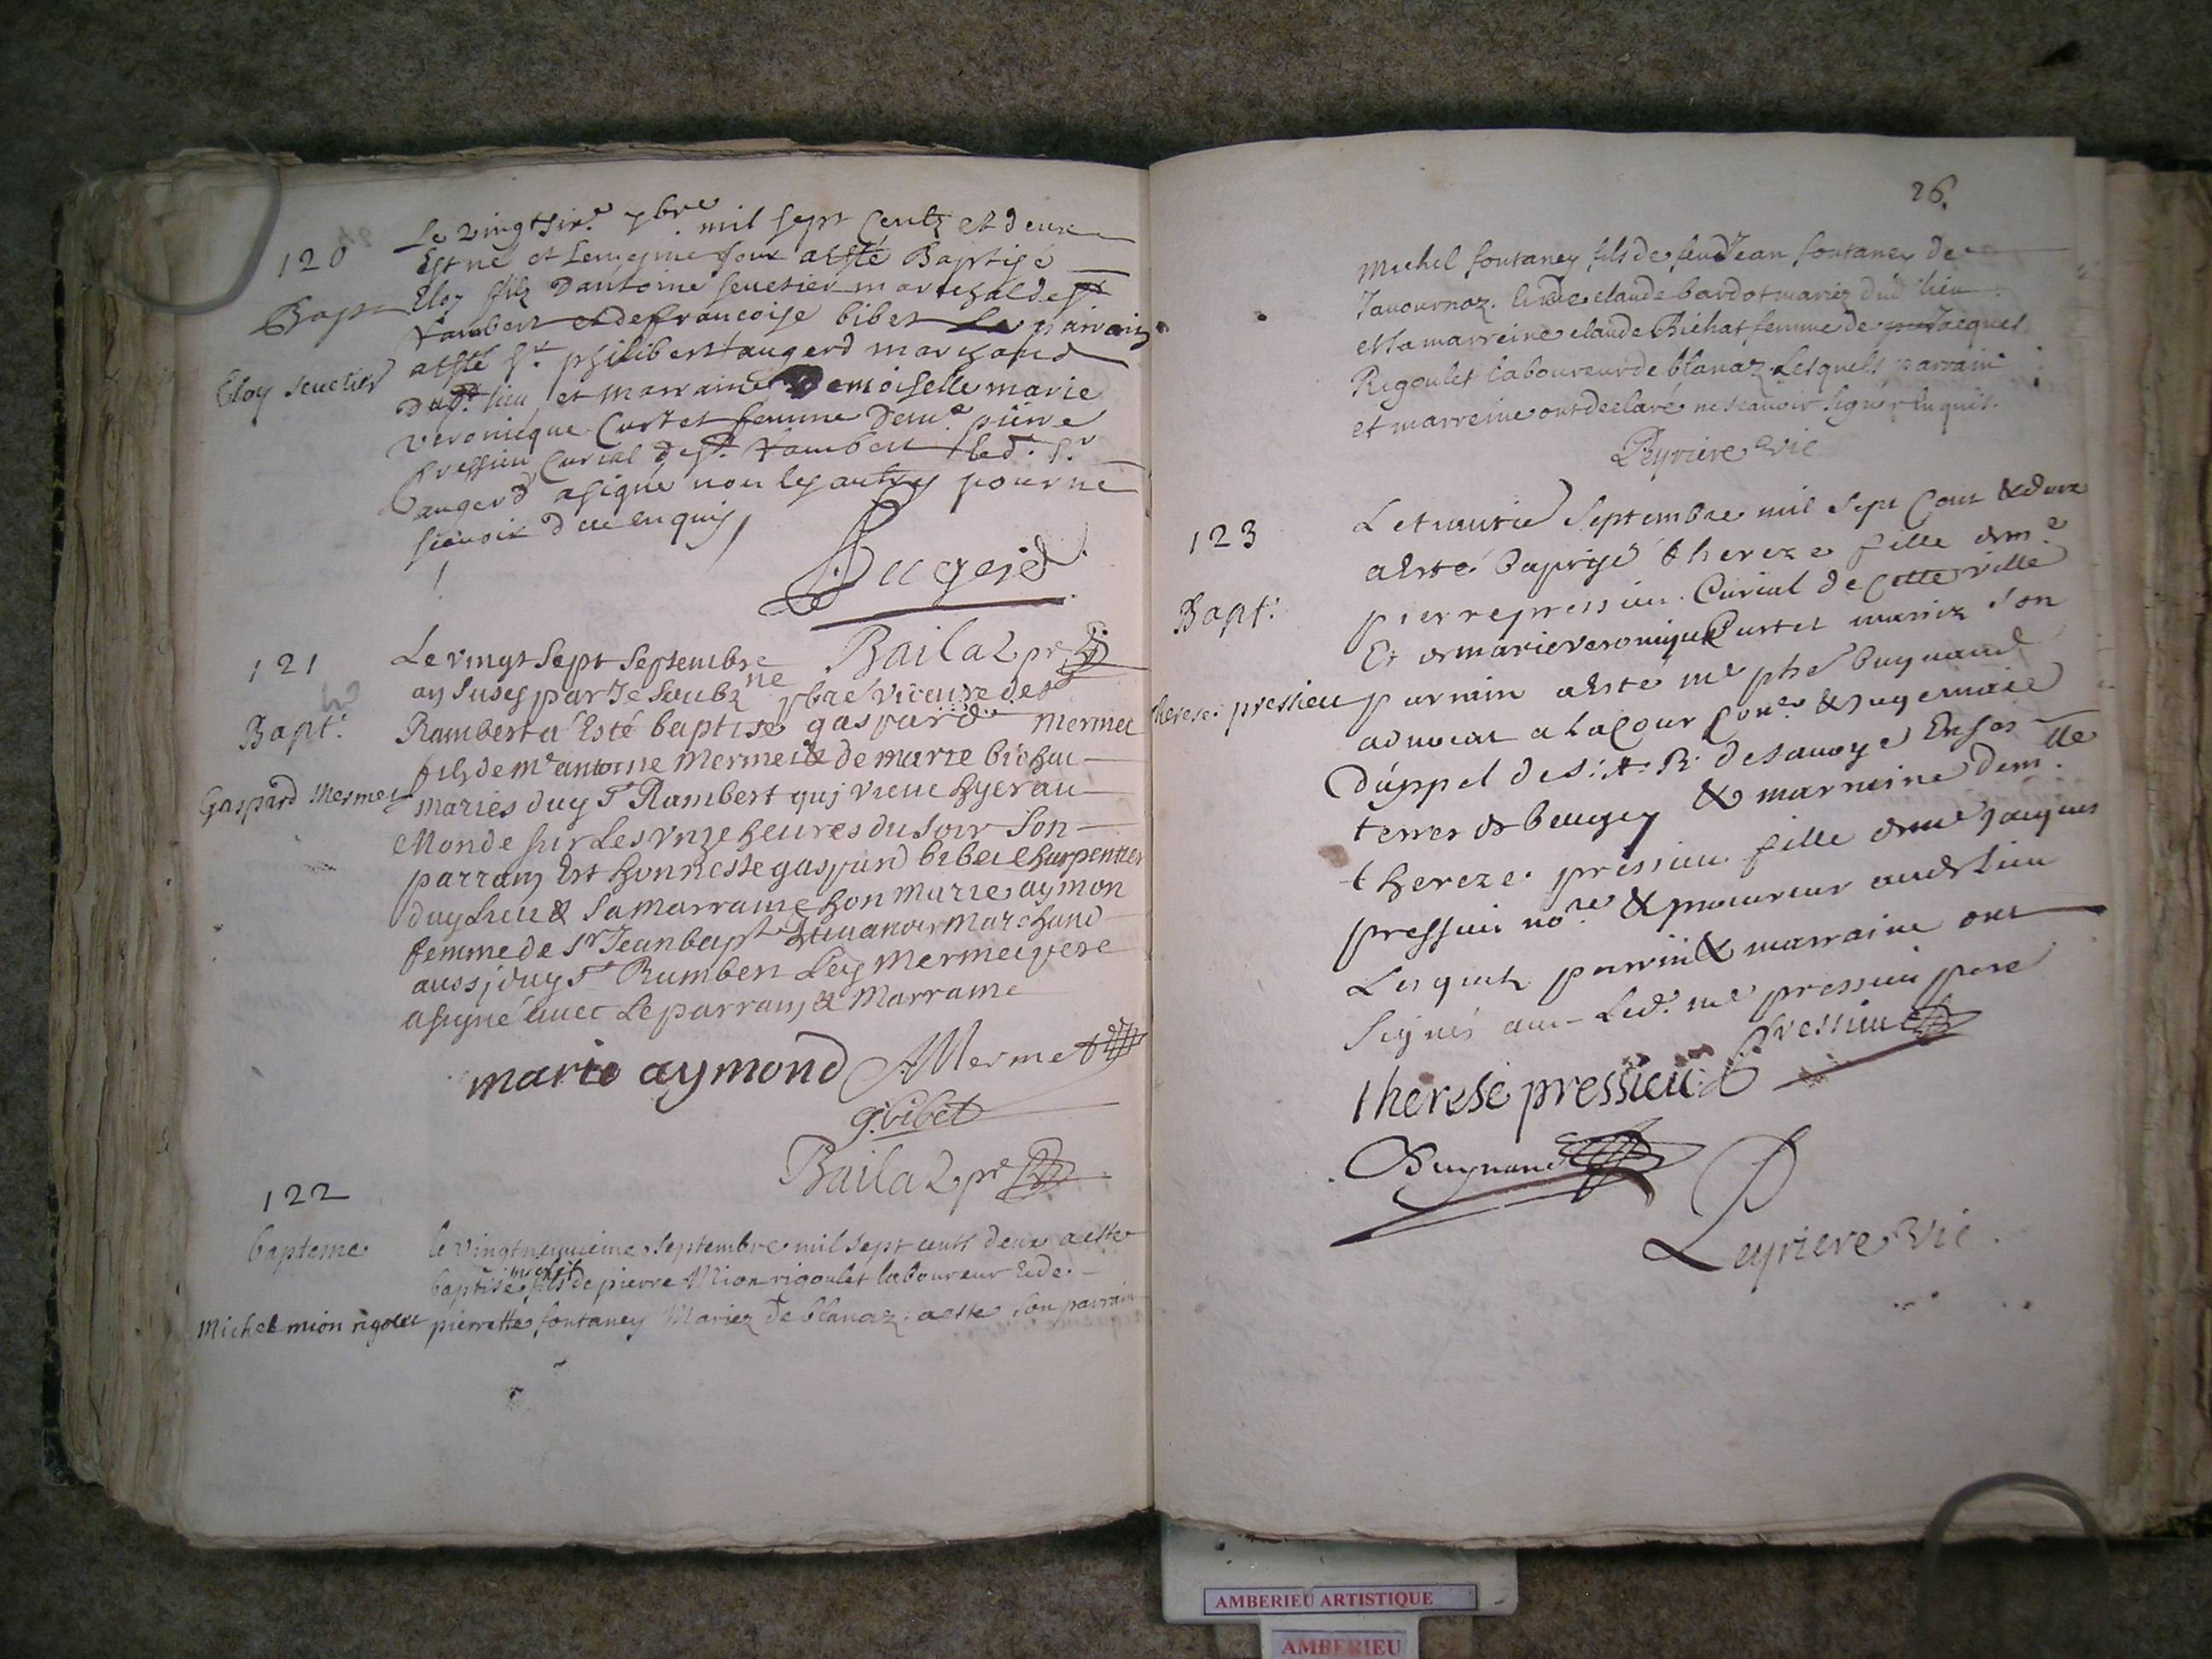 120
Bapt
Eloy seuctier
Le vingt sixe 7bre mil sept Centz et deux
Est né et le mesme jour a esté Baptisé
Eloy filz d'antoine seuctier mareschal de st
Rambert et de francoise bibet le parrain
a esté sr philibert augerd marchand
dudt lieu et marraine Demoiselle marie
veronicque Curtet femme de me pierre
pressieu Curial de st Rambert led. sr
augerd a signé non les autres pour ne
scavoir de ce enquis
Augerd
Bailaz pr
121
Bapt.
Gaspard Mermet
Le vingt sept septembre
an susd par Je soubzne pbre vicaire de st
Rambert a Esté baptisé gaspard mermet
fils de me antoine Mermet & de marie bichat
mariés du st Rambert qui vient hyer au
Monde sur les unze heures du soir son
parrain Est honneste gaspard bibet charpentier
du lieu & sa marraine hon marie aymon
femme de sr Jean bapt Marchand
aussi du st Rambert Led Mermet pere
a signé avec Le parrain & Marraine
marie aymond AMermet
g. bibet
Bailaz pr
122
bapteme
Michel mion rigolet
le vingtneuvieme septembre mil sept cents deux a este
baptise michel fils de pierre Mion rigoulet laboureur et de
pierrette fontaney Mariez de blanaz. a este son parrain
26.
Michel fontaney fils de feu Jean fontaney de
Javournaz. et de claude bardot mariez dud lieu
et la marreine claude Bichat femme de Jacques
Rigoulet laboureur de blanaz Lesquels parrain
et marreine ont declaré ne scavoir signer enquis.
Peyriere vic
123
Bapt.
therese pressieu
Le trantie septembre mil sept Cent & deux
a Esté baptisé thereze fille de me
pierre pressieu Curial de Cette ville
Et de marie veronique Curtet mariez son
parrain a Esté me phe buynand
advocat a la Cour & juge maie
d'appel de S. A. R. de savoye En ses
terres de beugey & marreine demlle
thereze pressieu fille de me Jacques
pressieu nore & procureur aud lieu
Lesquels parrin & marraine ont
signés avec Led. me pressieu pere
Pressieu
therese pressieu
Buynand
Peyriere vic.
AMBERIEU ARTISTIQUE
AMBERIEU